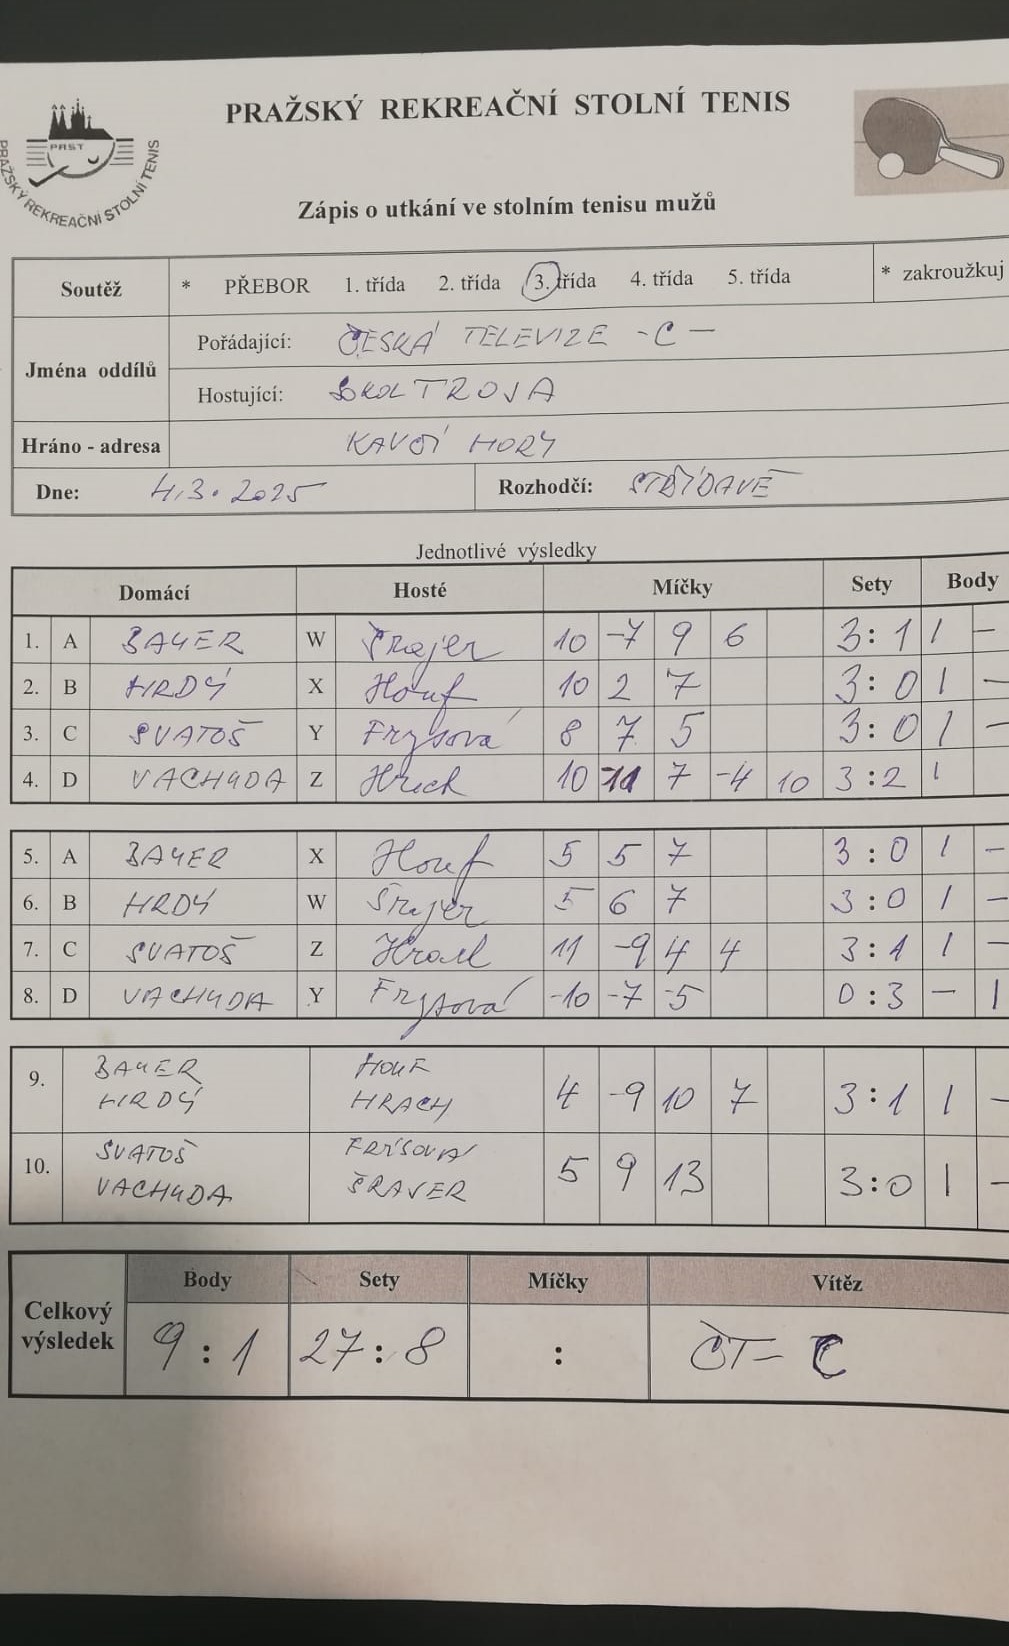 PRAŽSKÝ REKREAČNÍ STOLNÍ TENIS
PRST
PRAŽSKÝ REKREAČNÍ STOLNÍ TENIS
Zápis o utkání ve stolním tenisu mužů
Soutěž * PŘEBOR 1. třída 2. třída 3. třída 4. třída 5. třída * zakroužkuj
Jména oddílů
Pořádající: ČESKÁ TELEVIZE -C-
Hostující: SOKOL TROJA
Hráno - adresa KAVČÍ HORY
Dne: 4.3.2025 Rozhodčí: STŘÍDAVĚ
Jednotlivé výsledky
Domácí Hosté Míčky Sety Body
1. A BAUER W Šrajer 10 -7 9 6 3:1 1 -
2. B HRDÝ X Houf 10 2 7 3:0 1 -
3. C SVATOŠ Y Frysová 8 7 5 3:0 1 -
4. D VACHUDA Z 10 7 -4 10 3:2 1
5. A BAUER X Houf 5 5 7 3:0 1 -
6. B HRDÝ W Šrajer 5 6 7 3:0 1 -
7. C SVATOŠ Z 11 -9 4 4 3:1 1 -
8. D VACHUDA Y Frysová -10 -7 -5 0:3 - 1
9. BAUER HOUF
HRDÝ HRACH 4 -9 10 7 3:1 1 -
10. SVATOŠ FRÍSOVÁ
VACHUDA ŠRAVER 5 9 13 3:0 1 -
Celkový výsledek
Body Sety Míčky Vítěz
9:1 27:8 : ČT-C